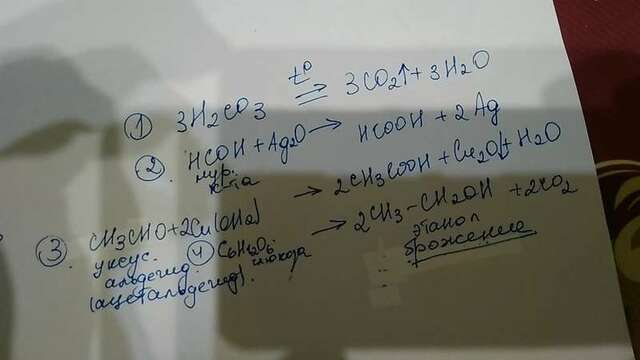 ① 3H2CO3 t° ⇒ 3CO2↑ + 3H2O
② HCOH + Ag2O → HCOOH + 2Ag
мур.
к-та
③ CH3CHO + 2Cu(OH2) → 2CH3COOH + Cu2O↓ + H2O
уксус.
альдегид.
(ацетальдегид).
④ C6H12O6 → 2CH3-CH2OH + 2CO2
глюкоза
этанол
брожение